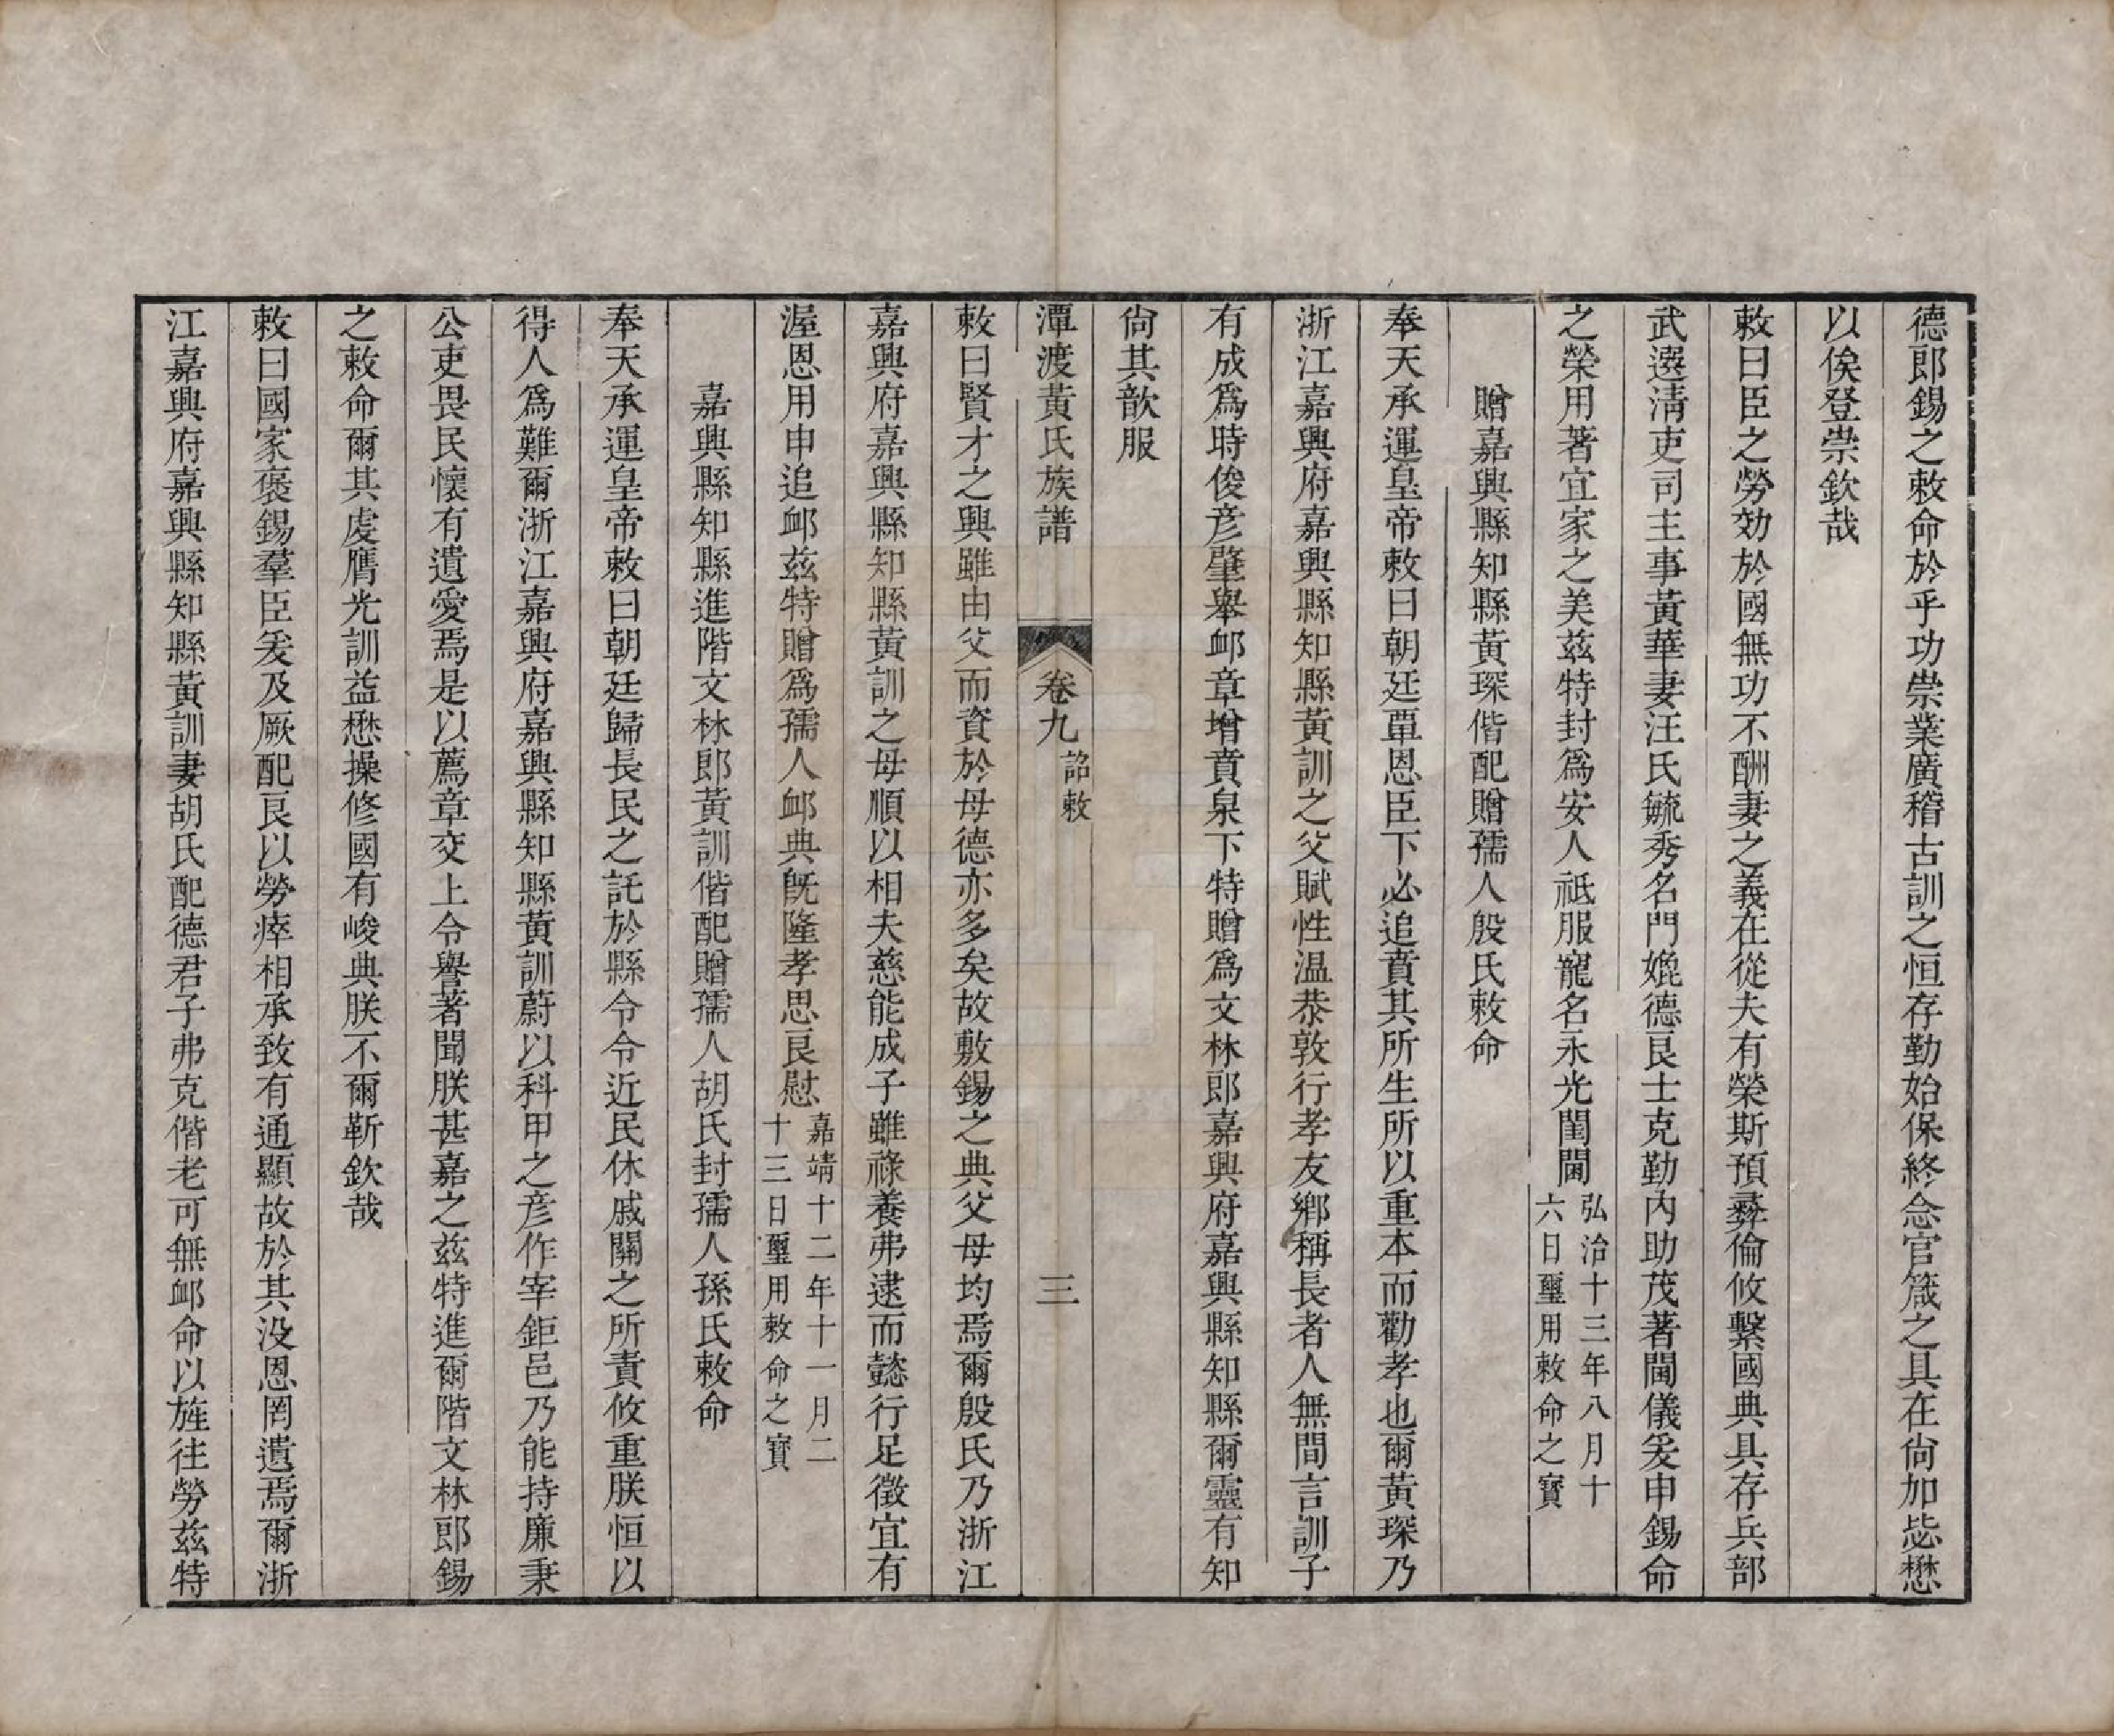 德郎錫之敕命於乎功崇業廣稽古訓之恒存勤始保終念官箴之具在尙加毖懋
以俟登崇欽哉
敕曰臣之勞効於國無功不酬妻之義在從夫有榮斯預彞倫攸繫國典具存兵部
武選淸吏司主事黃華妻汪氏毓秀名門媲德良士克勤內助茂著閫儀爰申錫命
之榮用著宜家之美茲特封爲安人祇服寵名永光閨閫弘治十三年八月十
六日璽用敕命之寳
贈嘉興縣知縣黃琛偕配贈孺人殷氏敕命
奉天承運皇帝敕曰朝廷覃恩臣下必追賁其所生所以重本而勸孝也爾黃琛乃
浙江嘉興府嘉興縣知縣黃訓之父賦性温恭敦行孝友鄉稱長者人無間言訓子
有成爲時俊彥肇舉卹章增賁泉下特贈爲文林郎嘉興府嘉興縣知縣爾靈有知
尙其歆服
潭渡黃氏族譜 卷九 詔敕 三
敕曰賢才之興雖由父而資於母德亦多矣故敷錫之典父母均焉爾殷氏乃浙江
嘉興府嘉興縣知縣黃訓之母順以相夫慈能成子雖祿養弗逮而懿行足徵宜有
渥恩用申追卹茲特贈爲孺人卹典旣隆孝思良慰嘉靖十二年十一月二
十三日璽用敕命之寳
嘉興縣知縣進階文林郎黃訓偕配贈孺人胡氏封孺人孫氏敕命
奉天承運皇帝敕曰朝廷歸長民之託於縣令令近民休戚關之所責攸重朕恒以
得人爲難爾浙江嘉興府嘉興縣知縣黃訓蔚以科甲之彥作宰鉅邑乃能持廉秉
公吏畏民懷有遺愛焉是以薦章交上令譽著聞朕甚嘉之茲特進爾階文林郎錫
之敕命爾其虔膺光訓益懋操修國有峻典朕不爾靳欽哉
敕曰國家褒錫羣臣爰及厥配良以勞瘁相承致有通顯故於其没恩罔遺焉爾浙
江嘉興府嘉興縣知縣黃訓妻胡氏配德君子弗克偕老可無卹命以旌往勞茲特